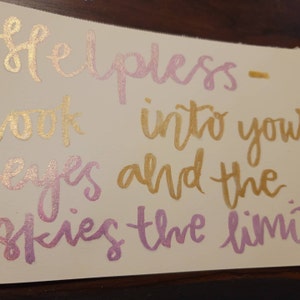 Helpless -
look into your
eyes and the
skies the limit